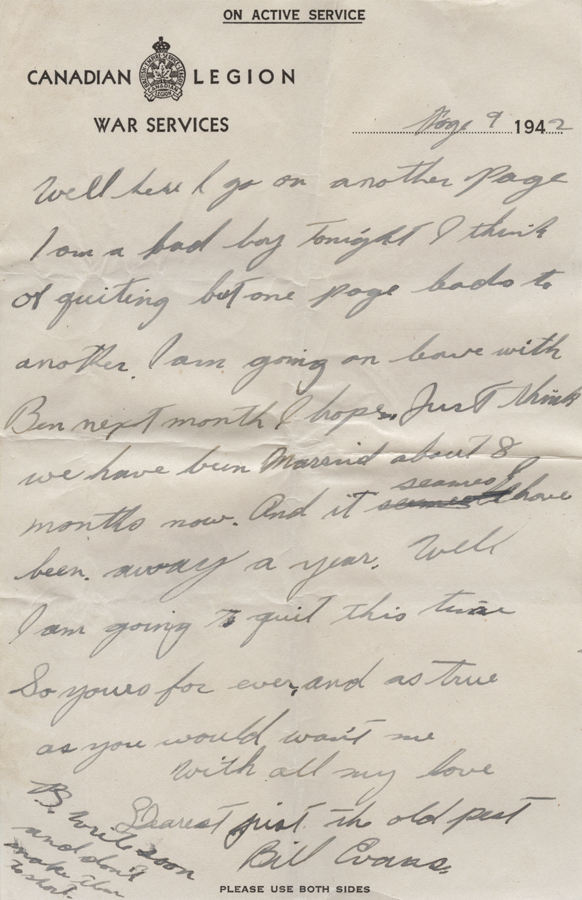 ON ACTIVE SERVICE
CANADIAN LEGION
WAR SERVICES
Aug 9 1942
Well here I go on another page
I am a bad boy tonight I think
of quiting but one page leads to
another. I am going on leave with
Ben next month I hope. Just think
we have been Married about 8
months now. And it seames I have
been. away a year. Well
I am going to quit this time
So yours for ever, and as true
as you would want me
With all my love
Dearest just the old pest
Bill Evans.
Write soon
and don't
make them
to short.
PLEASE USE BOTH SIDES